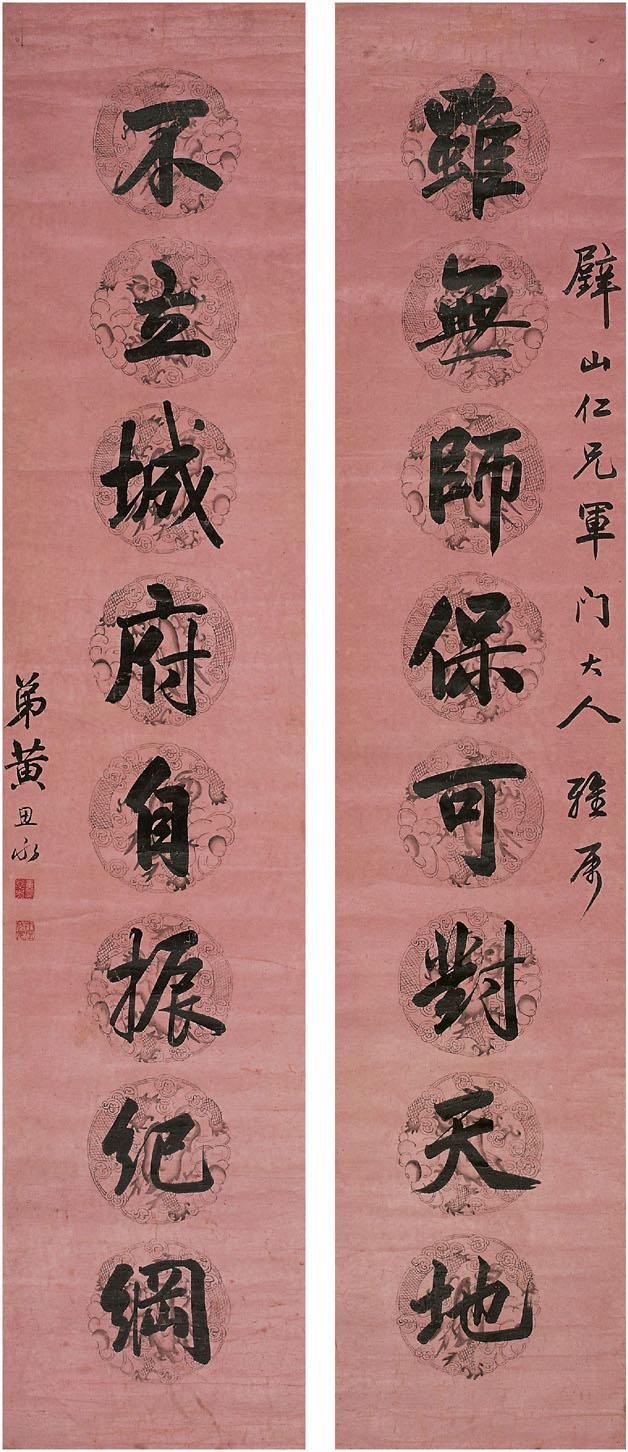 璧山仁兄軍门大人雅属
雖無師保可對天地
不立城府自振纪綱
弟黄思永